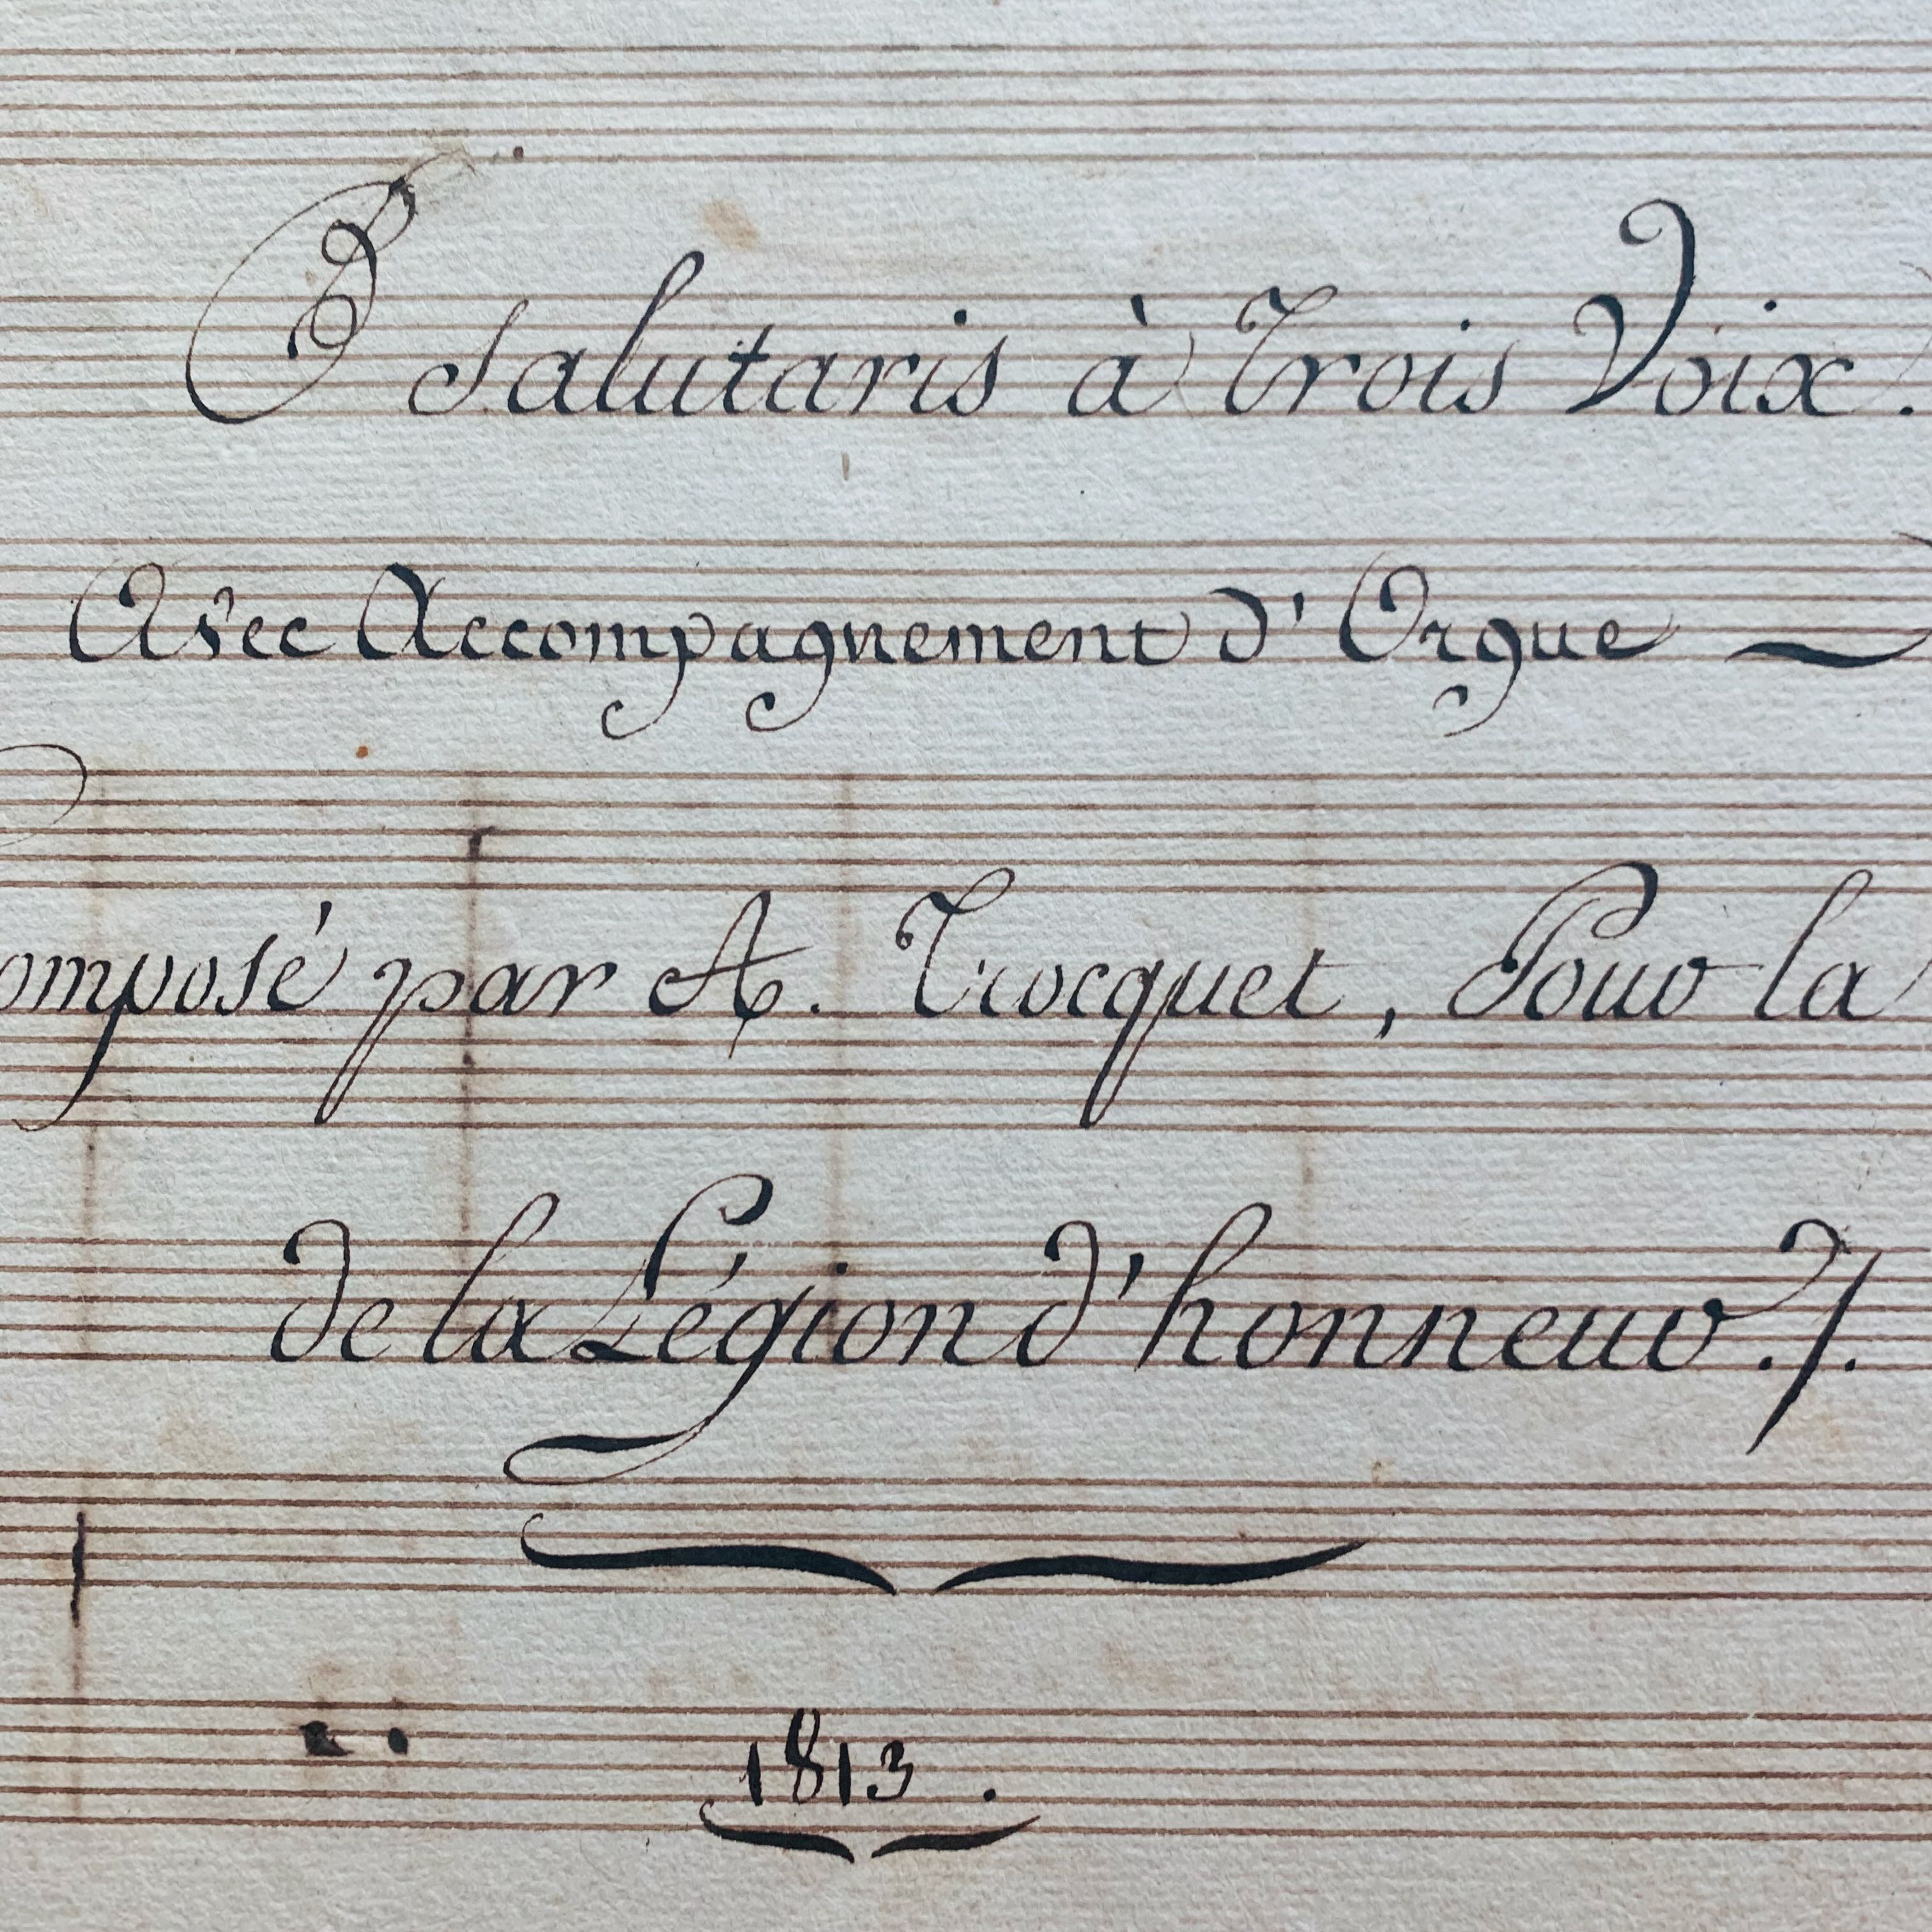 O salutaris à Trois Voix.
Avec Accompagnement d'Orgue
omposé par A. Trocquet, Pour la
de la Légion d'honneur ./.
1813.